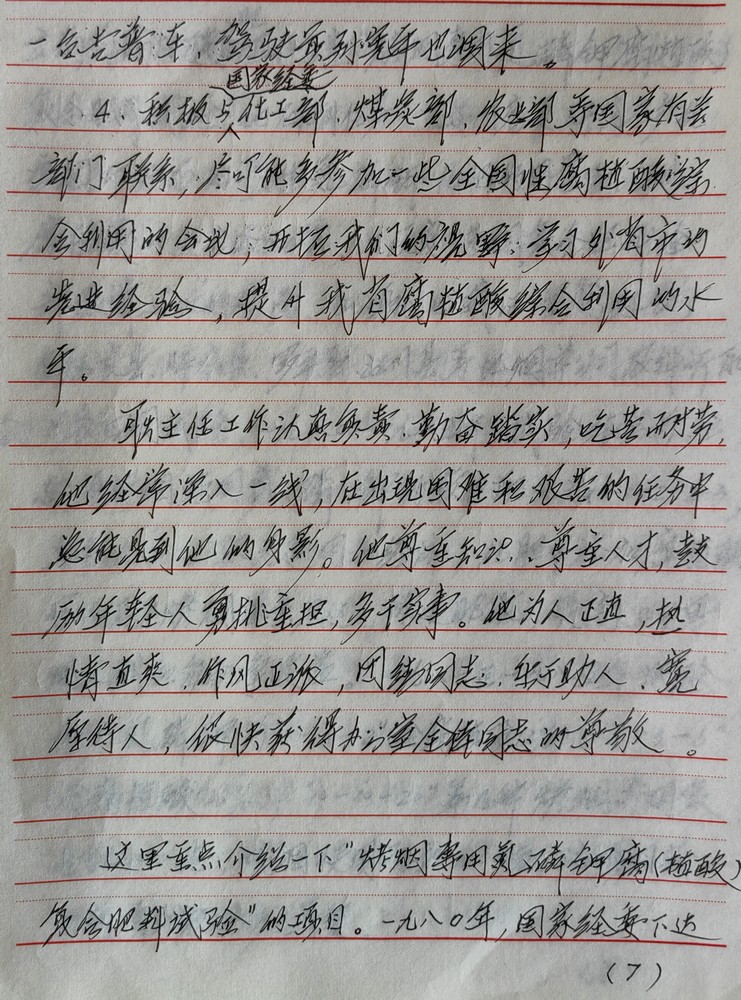 一台吉普车，驾驶员孙宪年也调来。
国家经委
4、积极与化工部、煤炭部、农业部等国家有关
部门联系，尽可能多参加一些全国性腐植酸综
合利用的会议，开拓我们的视野；学习外省市的
先进经验，提升我省腐植酸综合利用的水
平。
耿主任工作认真负责、勤奋踏实，吃苦耐劳，
他经常深入一线，在出现困难和艰苦的任务中
总能见到他的身影。他尊重知识、尊重人才，鼓
励年轻人勇挑重担，多干实事。他为人正直，热
情直爽、作风正派，团结同志、乐于助人、宽
厚待人，很快获得办公室全体同志的尊敬。
这里重点介绍一下“烤烟专用氮磷钾腐（植酸）
复合肥料试验”的项目。一九八〇年，国家经委下达
（7）